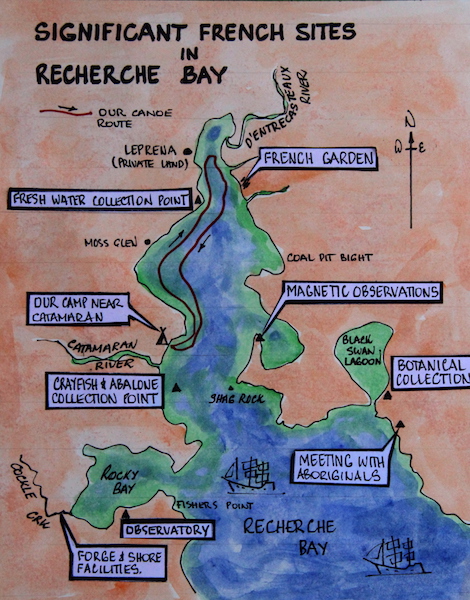 SIGNIFICANT FRENCH SITES
IN
RECHERCHE BAY
OUR CANOE
ROUTE
D'ENTRECASTEAUX
RIVER
LEPRENA
(PRIVATE LAND)
FRENCH GARDEN
N
W
E
FRESH WATER COLLECTION POINT
MOSS GLEN
COAL PIT BIGHT
OUR CAMP NEAR
CATAMARAN
MAGNETIC OBSERVATIONS
CATAMARAN
RIVER
BLACK
SWAN
LAGOON
BOTANICAL
COLLECTION
CRAYFISH & ABALONE
COLLECTION POINT
SHAG ROCK
MEETING WITH
ABORIGINALS
COCKLE CRK
ROCKY
BAY
FISHERS POINT
OBSERVATORY
RECHERCHE
BAY
FORGE & SHORE
FACILITIES.